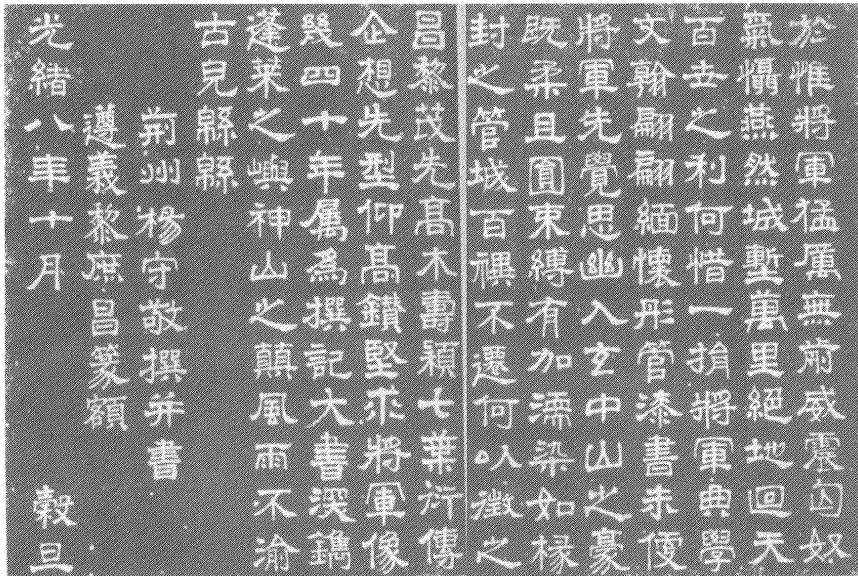 於惟將軍猛厲無前威震匈奴
氣懾燕然城塹萬里絕地回天
百世之利何惜一捐將軍典學
文翰翩翩緬懷彤管漆書未便
將軍先覺思幽入玄中山之豪
既柔且圓束縛有加濡染如椽
封之管城百禩不遷何以徵之
昌黎茂先髙木壽穎七葉衍傳
企想先型仰髙鑽堅求將軍像
幾四十年屬為撰記大書深鐫
蓬萊之嶼神山之顛風雨不渝
古皃緜緜
荊州楊守敬撰并書
遵義黎庶昌篆額
光緒八年十月 穀旦